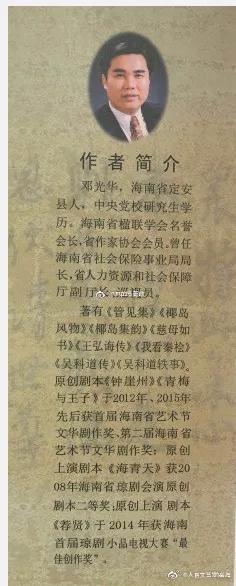 作者简介
邓光华，海南省定安
县人，中央党校研究生学
历。海南省楹联学会名誉
会长，省作家协会会员。曾任
海南省社会保险事业局局
长，省人力资源和社会保障
厅副厅长、巡视员。
著有《管见集》《椰岛
风物》《椰岛集韵》《慈母如
书》《王弘诲传》《我看秦桧》
《吴科道传》《吴科道轶事》。
原创剧本《钟崖州》《青梅
与王子》于2012年、2015年
先后获首届海南省艺术节
文华剧作奖、第二届海南省
艺术节文华剧作奖；原创
上演剧本《海青天》获20
08年海南省琼剧会演原创
剧本二等奖;原创上演剧本
《荐贤》于2014年获海南
首届琼剧小品电视大赛“最
佳创作奖”。